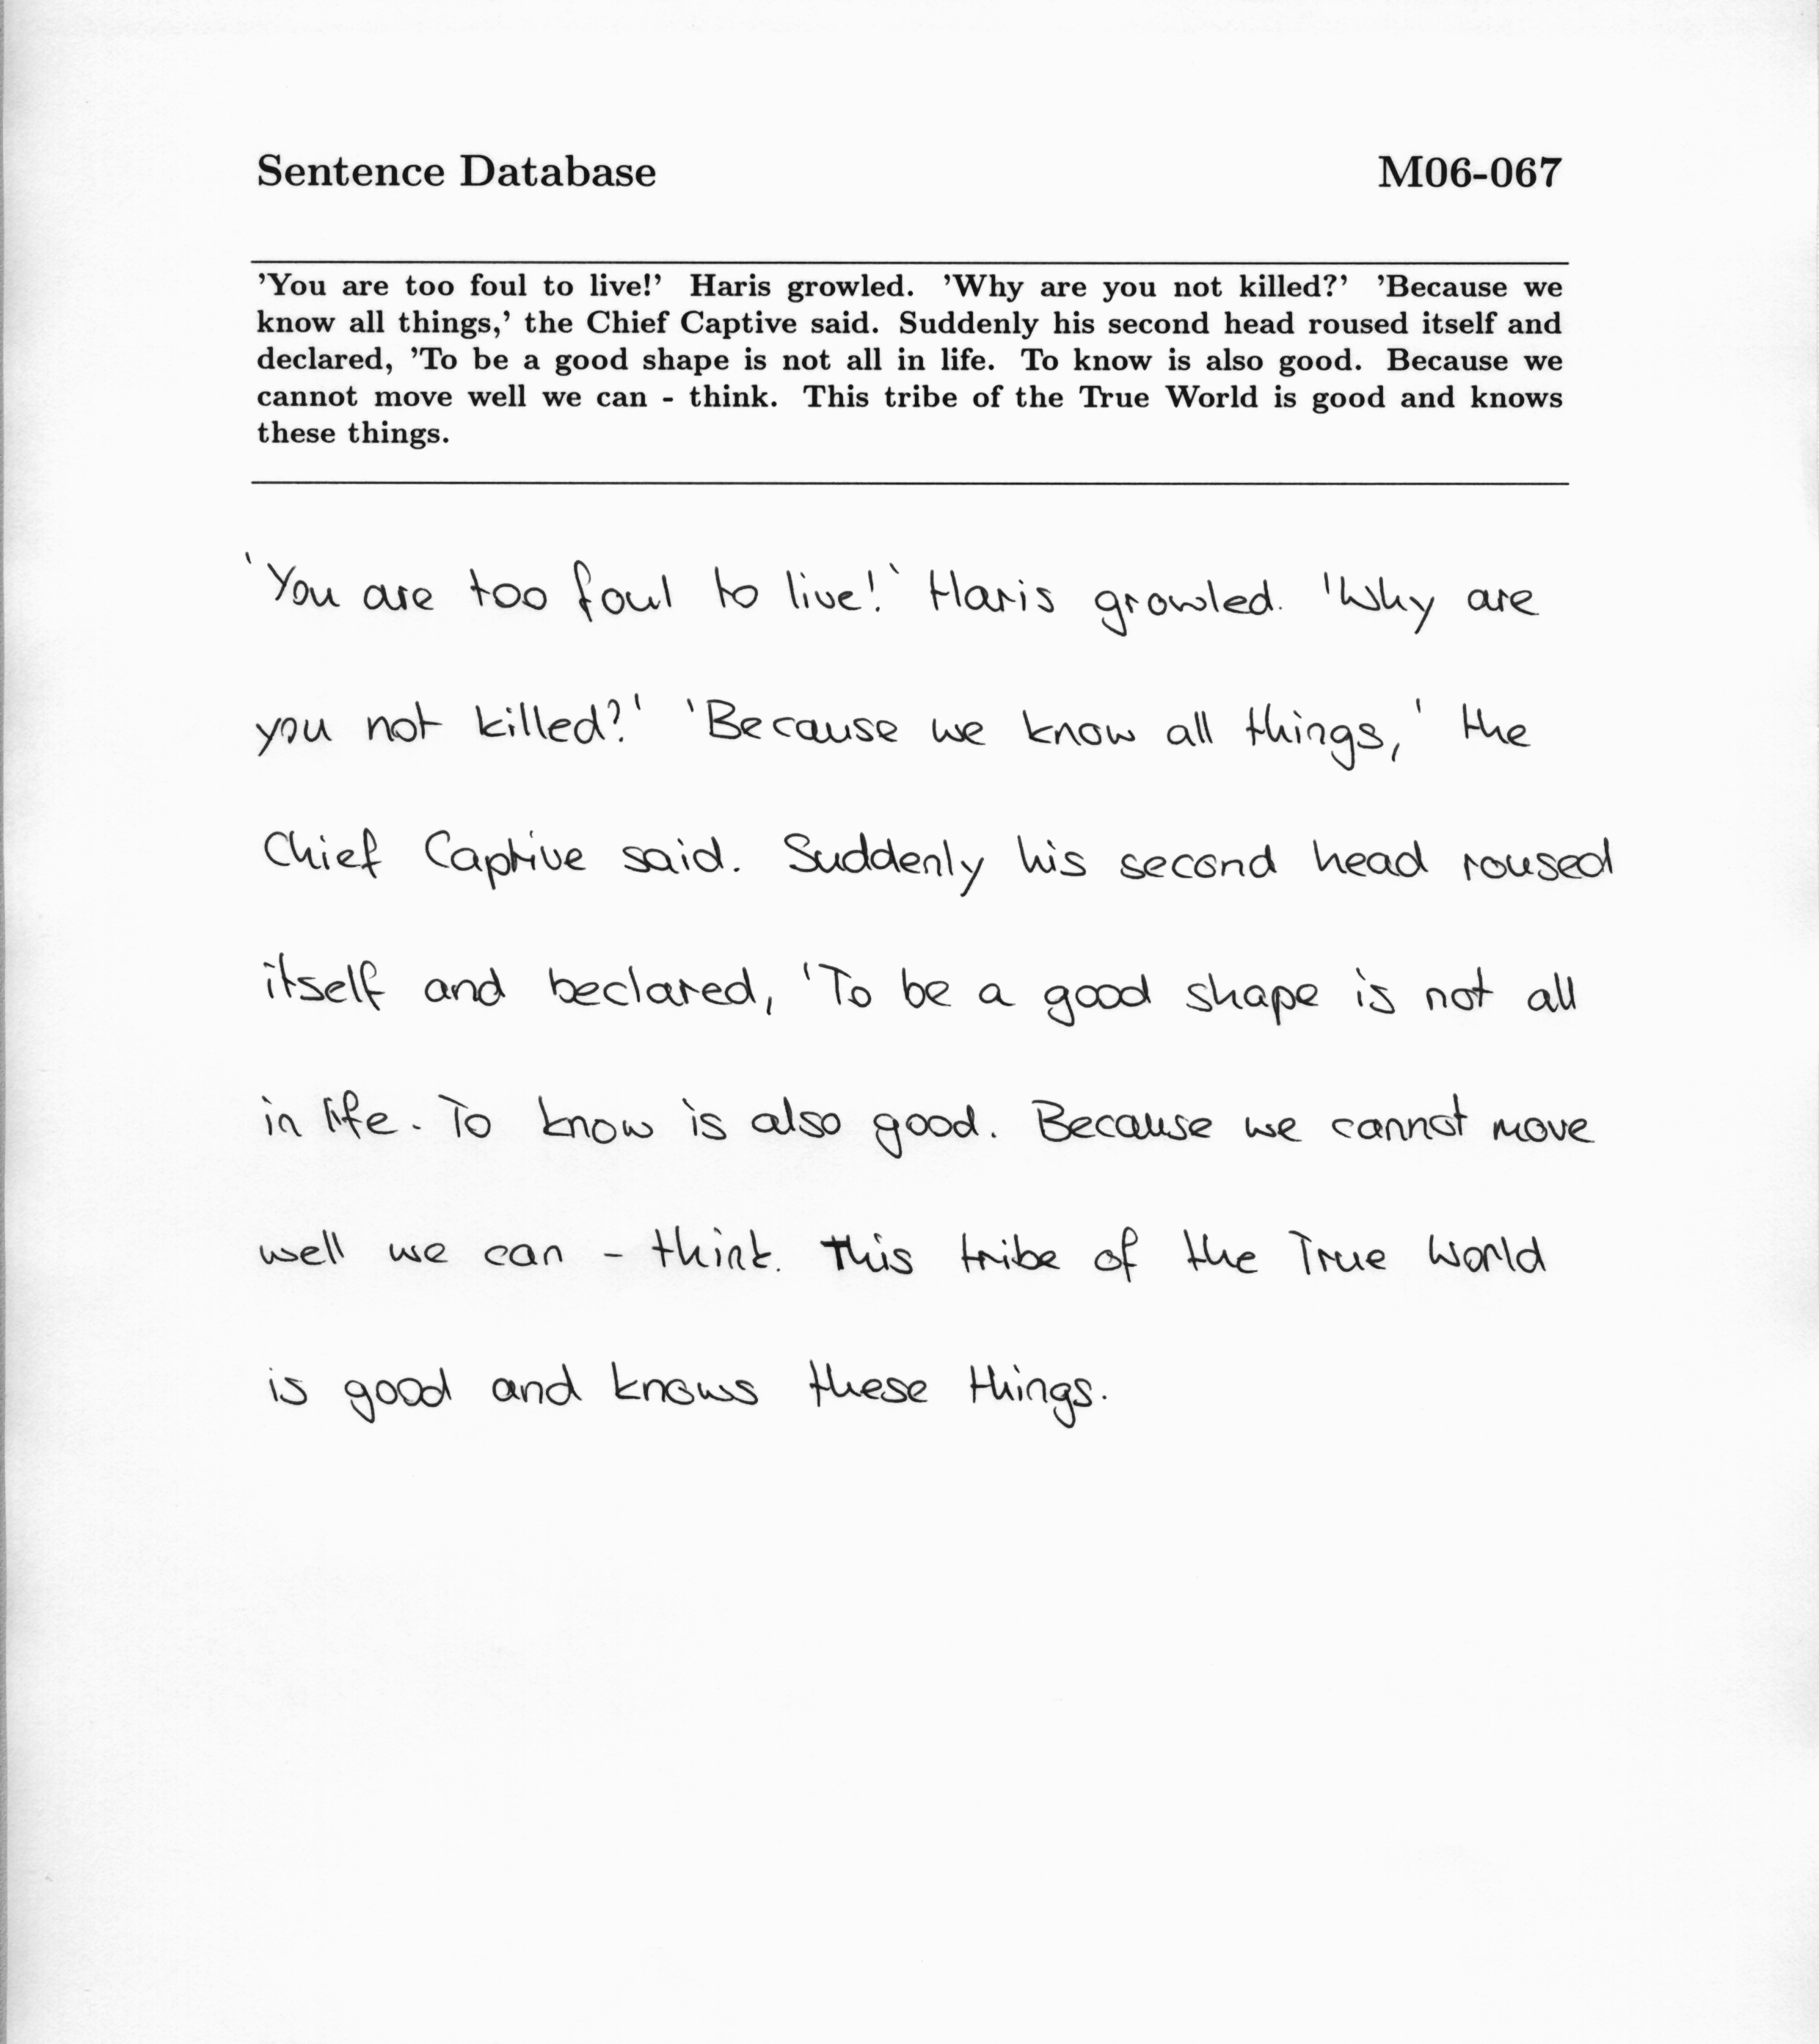 Sentence Database M06-067
'You are too foul to live!' Haris growled. 'Why are you not killed?' 'Because we
know all things,' the Chief Captive said. Suddenly his second head roused itself and
declared, 'To be a good shape is not all in life. To know is also good. Because we
cannot move well we can - think. This tribe of the True World is good and knows
these things.
'You are too foul to live!' Haris growled. 'Why are
you not killed?' 'Because we know all things,' the
Chief Captive said. Suddenly his second head roused
itself and beclared, 'To be a good shape is not all
in life. To know is also good. Because we cannot move
well we can - think. This tribe of the True World
is good and knows these things.